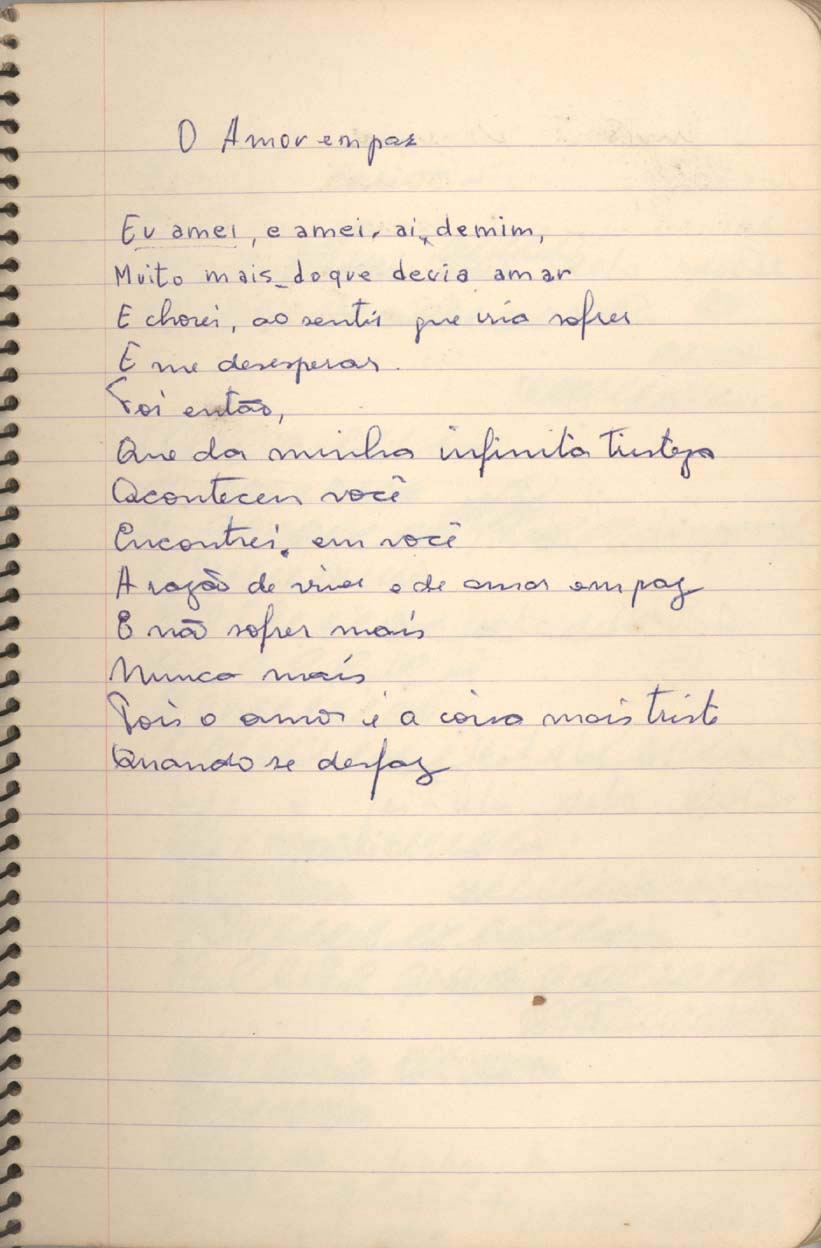 O Amor em paz
Eu amei, e amei, ai, de mim,
Muito mais do que devia amar
E chorei, ao sentir que iria sofrer
E me desesperar.
Foi então,
Que da minha infinita tristeza
Aconteceu você
Encontrei, em você
A razão de viver e de amar em paz
E não sofrer mais
Nunca mais
Pois o amor é a coisa mais triste
Quando se desfaz